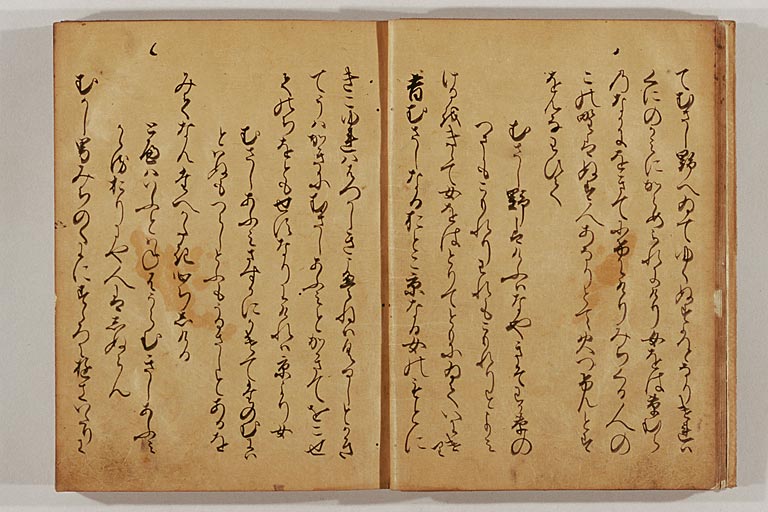 てむさし野へゐてゆくぬす人なりけれは
くにのかみにからめられにけり女をは草むら
のなかにをきてにけにけりみちくる人の
この野はぬす人あなりとて火つけんとす
をんなわひて
むさし野はけふはなやきそわか草の
つまもこもれりわれもこもれりとよみ
けるをきゝて女をはとりてともにゐていにけり
昔むさしなるおとこ京なる女のもとに
きこゆれははつかしきこえねはくるしとかき
てうはかきにむさしあふみとかきてをこせ
てのちをともせすなりにけれは京より女
むさしあふみさすかにかけてたのむには
とはぬもつらしとふもうるさしとあるを
みてなんたへかたき心ちしける
とへはいふとはねはうらむむさしあふみ
かゝるおりにや人はしぬらん
むかし男みちのくにすゝろにゆきいたりに